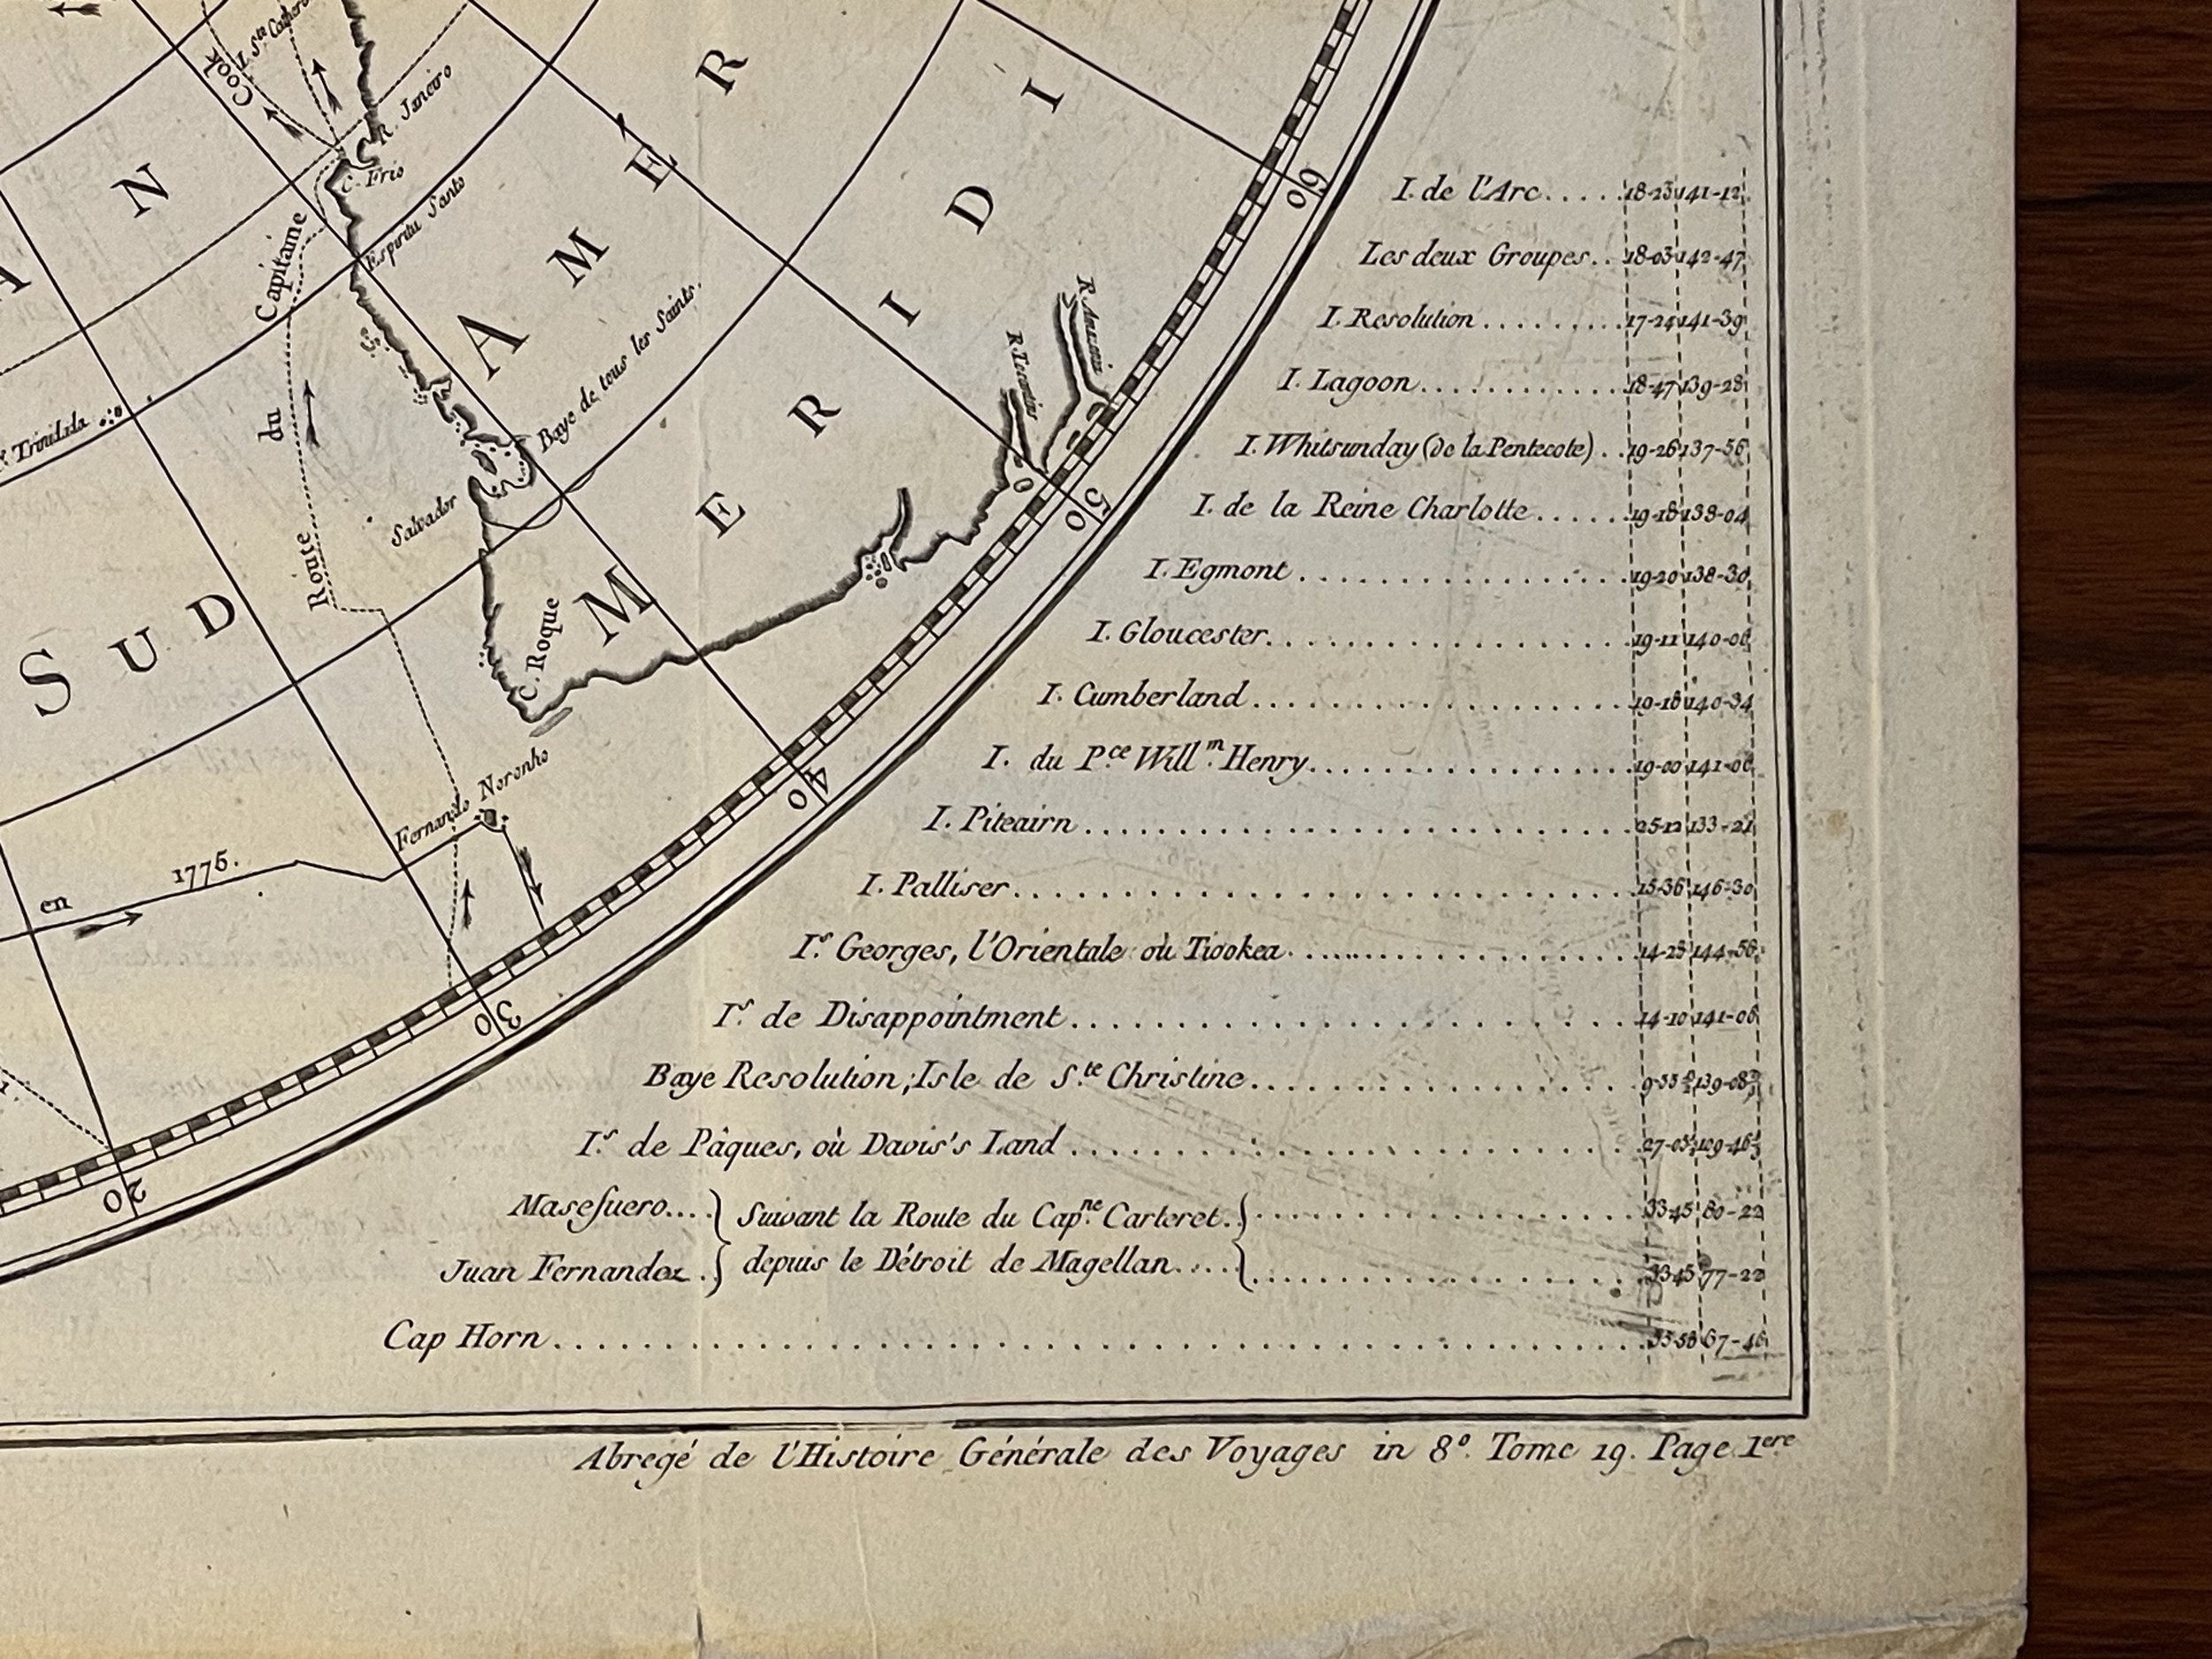 I. Ste.
Cook
R. Janeiro
C. Frio
Espiritu Santo
Capitaine
du
Route
Trinidada
Baye de tous les Saints.
Salvador
C. Roque
Fernando Noronho
en 1775.
N
A
SUD
AMÉR
MERIDI
AM
R. Tocantin
60
50
40
30
20
I. de l'Arc..... 18-23 141-12
Les deux Groupes.. 18-03 142-47
I. Resolution......... 17-24 141-39
I. Lagoon............ 18-47 139-28
I. Whitsunday (de la Pentecote).. 19-26 137-56
I. de la Reine Charlotte..... 19-18 138-04
I. Egmont................ 19-20 138-30
I. Gloucester.................. 19-11
I. Cumberland.................. 19-18 140-34
I. du P.ce Will.m Henry.................. 19-00
I. Piteairn....................... 25-12 133-21
I. Palliser......................... 15-36 146-30
I.s Georges, l'Orientale où Tiookea.................. 14-28
I.s de Disappointment....................... 14-10
Baye Resolution; Isle de S.te Christine................
I.s de Pâques, où Davis's Land.......................
Masefuero.... } Suivant la Route du Cap.ne Carteret. {................ 33-45 80-22
Juan Fernandez.. } depuis le Détroit de Magellan..... {................ 33-45 77-22
Cap Horn........................................
Abregé de l'Histoire Générale des Voyages in 8º. Tome 19. Page 1ere